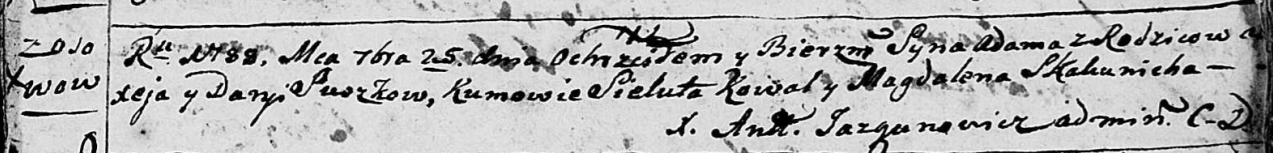 Zoso
twow
Ru 1788. Mca 7bra 25. dnia Ochrzciłem y Bierzm. Syna Adama z Rodzicow a
xeja y Daryi Suszkow, Kumowie Sieluta Kowal y Magdalena Skakunicha —
X. Ant. Jazgunowicz admin. C-D